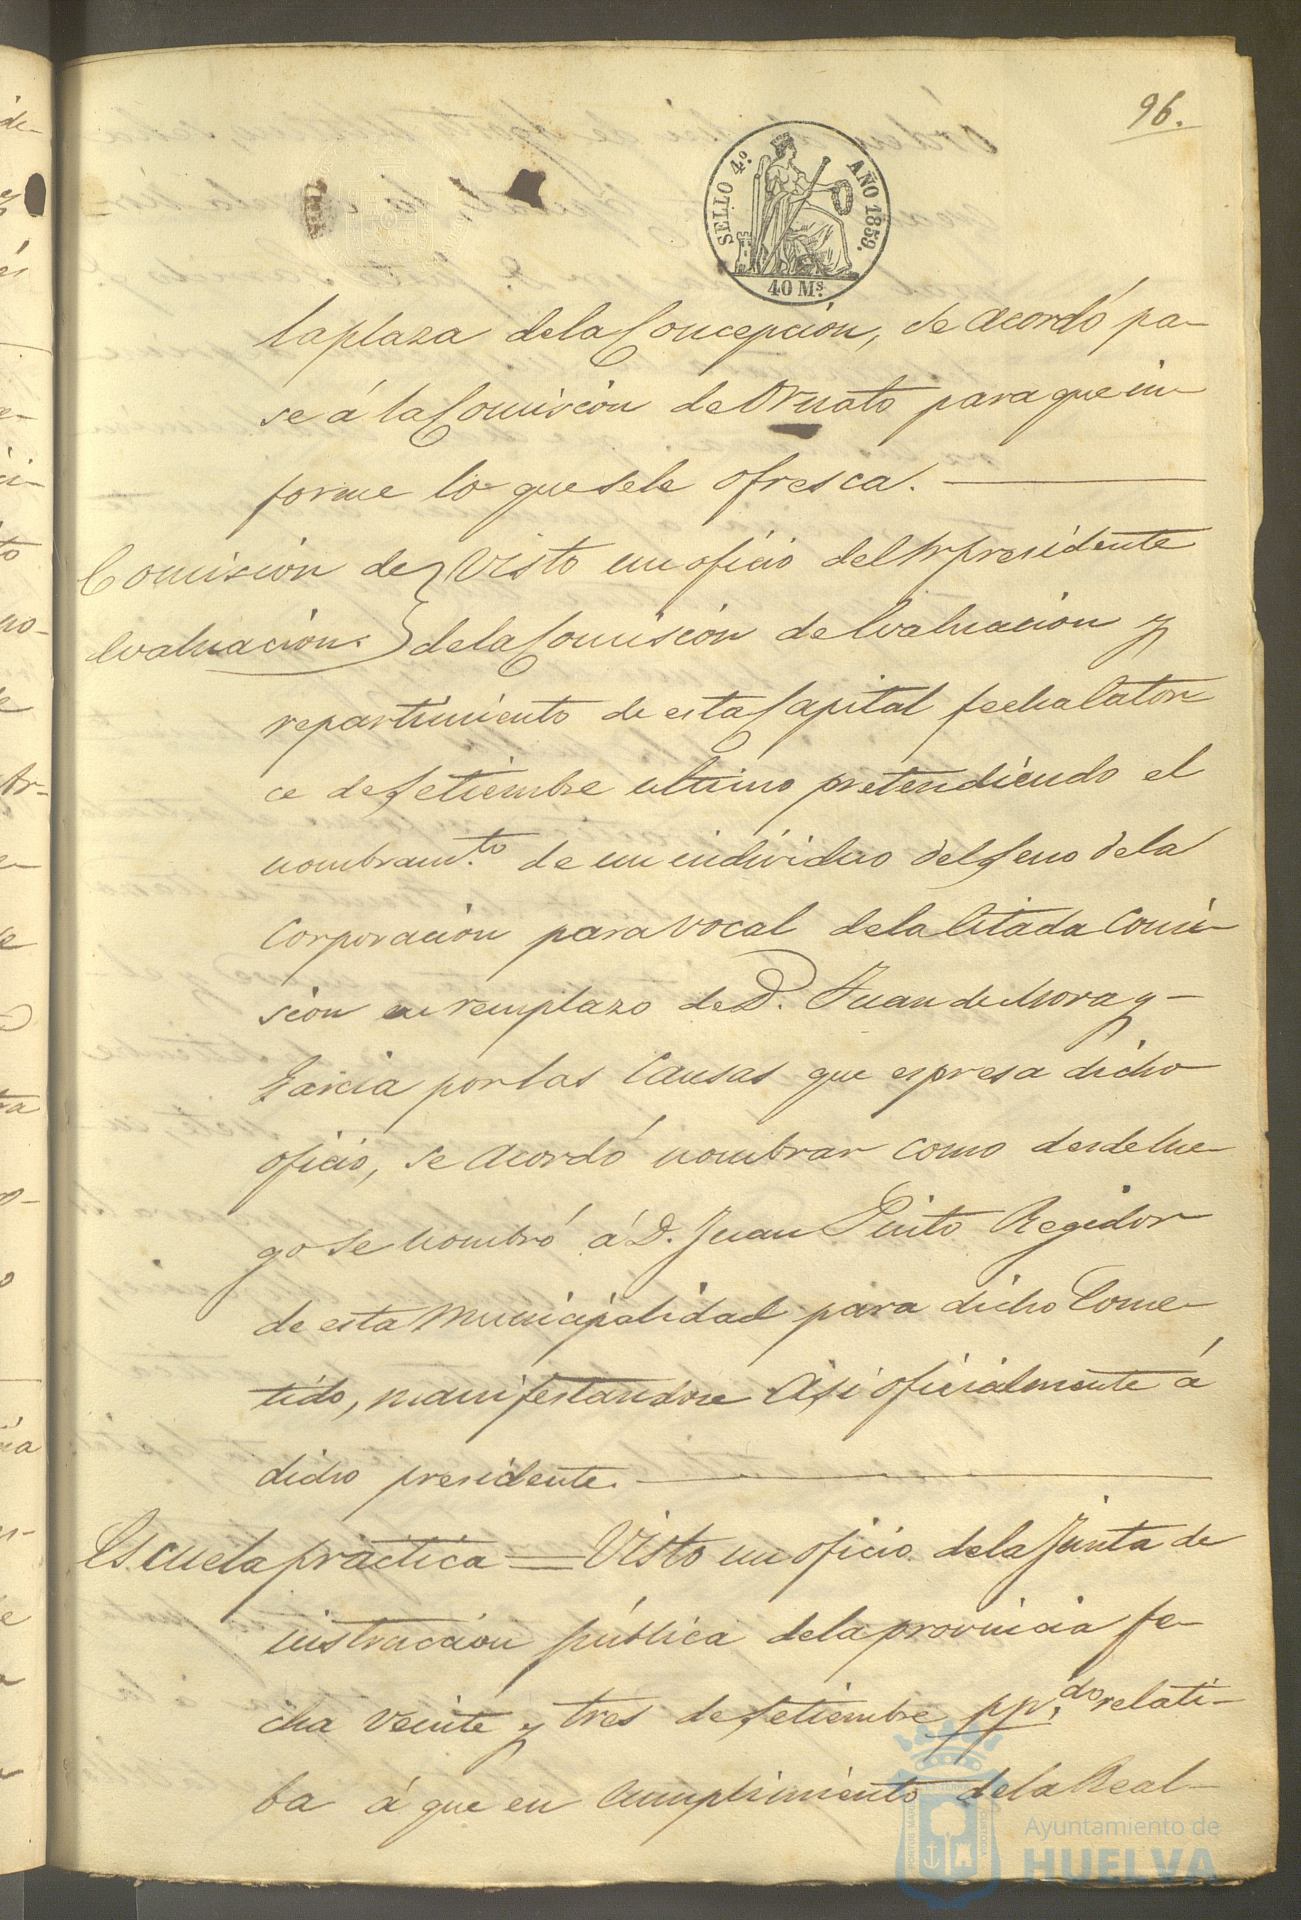 96.
SELLO 4º. AÑO 1859.
40 Ms.
la plaza de la Concepción, se acordó pa-
se á la Comision de Ornato para que in-
forme lo que se le ofresca.
Comision de Visto un oficio del Sr presidente
Evaluacion. de la Comision de Evaluacion y
repartimiento de esta Capital fecha Cator-
ce de Setiembre ultimo pretendiendo el
nombram.to de un individuo del Seno de la
Corporacion para vocal de la Citada Comi-
sion en remplazo de D. Juan de Mora y
Garcia por las Causas que espresa dicho
oficio, se acordó nombrar como desde lue-
go se nombró á D. Juan Pinto Regidor
de esta Municipalidad para dicho Come-
tido, manifestandose Asi oficialmente á
dicho presidente.
Escuela práctica = Visto un oficio de la Junta de
instruccion pública de la provincia fe-
cha veinte y tres de Setiembre pp.do relati-
ba á que en cumplimiento de la Real
Ayuntamiento de
HUELVA